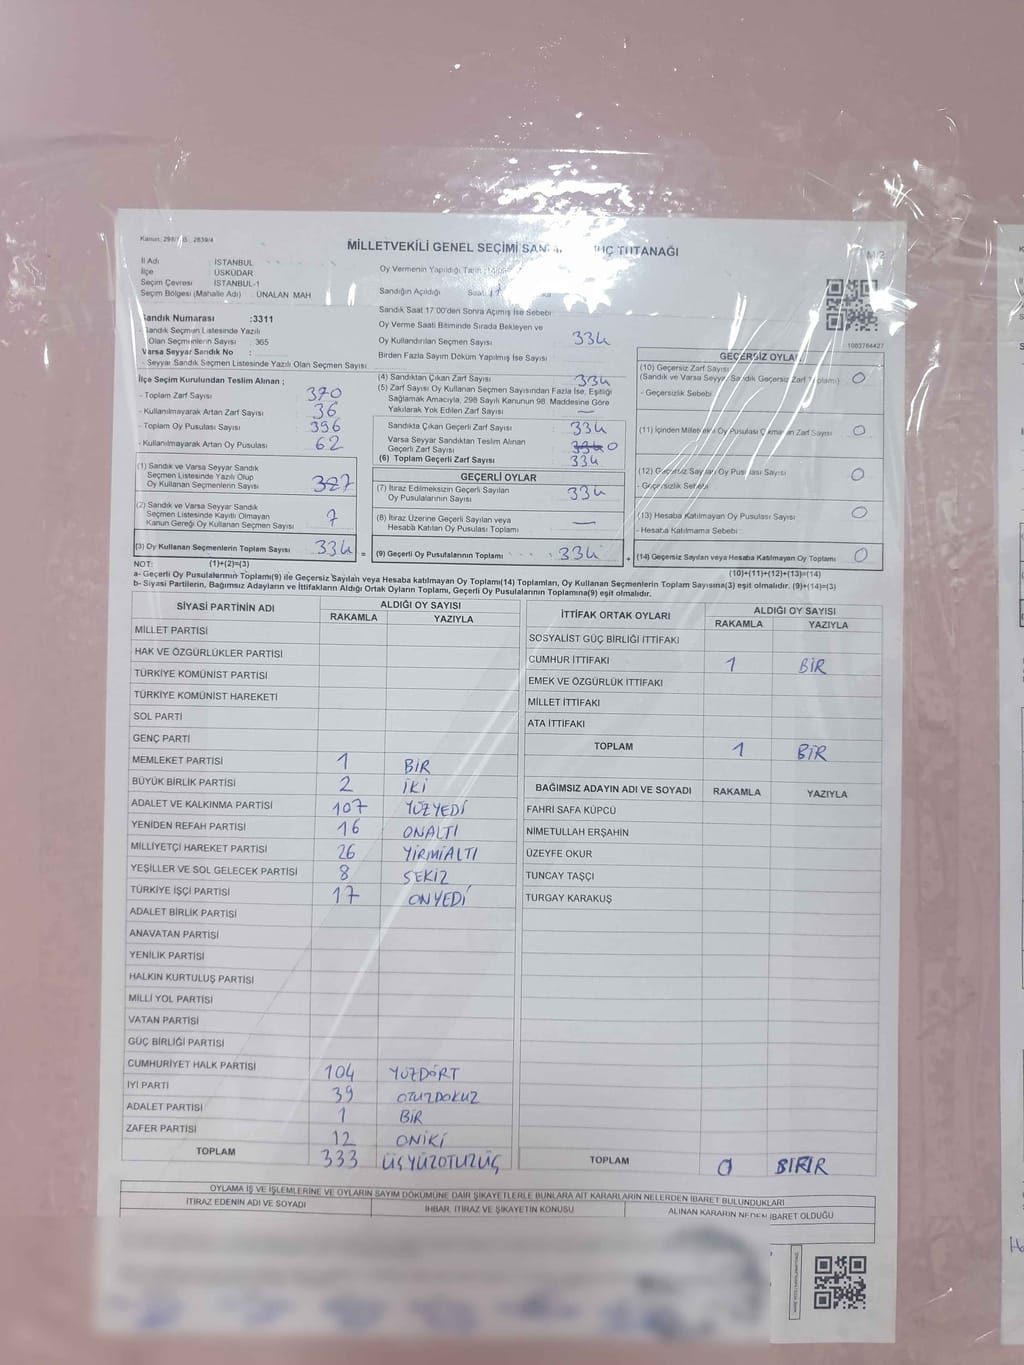 MİLLETVEKİLİ GENEL SEÇİMİ TUTANAĞI
İl Adı : İSTANBUL
İlçe ÜSKÜDAR
Seçim Çevresi İSTANBUL-1
Seçim Bölgesi (Mahalle Adı) ÜNALAN MAH
Sandık Numarası :3311
-Sandık Seçmen Listesinde Yazılı
Olan Seçmenlerin Sayısı : 365
Varsa Seyyar Sandık No :
- Seyyar Sandık Seçmen Listesinde Yazılı Olan Seçmen Sayısı
İlçe Seçim Kurulundan Teslim Alınan ;
- Toplam Zarf Sayısı 370
- Kullanılmayarak Artan Zarf Sayısı 36
- Toplam Oy Pusulası Sayısı 396
- Kullanılmayarak Artan Oy Pusulası 62
(1) Sandık ve Varsa Seyyar Sandık
Seçmen Listesinde Yazılı Olup
Oy Kullanan Seçmenlerin Sayısı 327
(2) Sandık ve Varsa Seyyar Sandık
Seçmen Listesinde Kayıtlı Olmayan
Kanun Gereği Oy Kullanan Seçmen Sayısı 7
(3) Oy Kullanan Seçmenlerin Toplam Sayısı 334 =
Oy Vermenin Yapıldığı
Sandığın Açıldığı
Sandık Saat 17.00'den Sonra Açılmış İse Sebebi
Oy Verme Saati Bitiminde Sırada Bekleyen ve
Oy Kullandırılan Seçmen Sayısı 334
Birden Fazla Sayım Döküm Yapılmış İse Sayısı
(4) Sandıktan Çıkan Zarf Sayısı 334
(5) Zarf Sayısı Oy Kullanan Seçmen Sayısından Fazla İse, Eşitliği
Sağlamak Amacıyla, 298 Sayılı Kanunun 98. Maddesine Göre
Yakılarak Yok Edilen Zarf Sayısı —
Sandıkta Çıkan Geçerli Zarf Sayısı : 334
Varsa Seyyar Sandıktan Teslim Alınan
Geçerli Zarf Sayısı 0
(6) Toplam Geçerli Zarf Sayısı 334
GEÇERLİ OYLAR
(7) İtiraz Edilmeksizin Geçerli Sayılan
Oy Pusulalarının Sayısı 334
(8) İtiraz Üzerine Geçerli Sayılan veya
Hesaba Katılan Oy Pusulası Toplamı —
(9) Geçerli Oy Pusulalarının Toplamı 334 +
1083784427
GEÇERSİZ OYLAR
(10) Geçersiz Zarf Sayısı
(Sandık ve Varsa Seyyar Sandık Geçersiz Zarf Toplamı) 0
- Geçersizlik Sebebi
(11) İçinden Milletvekili Oy Pusulası Çıkmayan Zarf Sayısı 0
(12) Geçersiz Sayılan Oy Pusulası Sayısı 0
- Geçersizlik Sebebi
(13) Hesaba Katılmayan Oy Pusulası Sayısı 0
- Hesaba Katılmama Sebebi
(14) Geçersiz Sayılan veya Hesaba Katılmayan Oy Toplamı 0
NOT: (1)+(2)=(3) (10)+(11)+(12)+(13)=(14)
a- Geçerli Oy Pusulalarının Toplamı(9) ile Geçersiz Sayılan veya Hesaba katılmayan Oy Toplamı(14) Toplamları, Oy Kullanan Seçmenlerin Toplam Sayısına(3) eşit olmalıdır. (9)+(14)=(3)
b- Siyasi Partilerin, Bağımsız Adayların ve İttifakların Aldığı Ortak Oyların Toplamı, Geçerli Oy Pusulalarının Toplamına(9) eşit olmalıdır.
SİYASİ PARTİNİN ADI ALDIĞI OY SAYISI
RAKAMLA YAZIYLA
MİLLET PARTİSİ
HAK VE ÖZGÜRLÜKLER PARTİSİ
TÜRKİYE KOMÜNİST PARTİSİ
TÜRKİYE KOMÜNİST HAREKETİ
SOL PARTİ
GENÇ PARTİ
MEMLEKET PARTİSİ 1 BİR
BÜYÜK BİRLİK PARTİSİ 2 İKİ
ADALET VE KALKINMA PARTİSİ 107 YÜZYEDİ
YENİDEN REFAH PARTİSİ 16 ONALTI
MİLLİYETÇİ HAREKET PARTİSİ 26 YİRMİALTI
YEŞİLLER VE SOL GELECEK PARTİSİ 8 SEKİZ
TÜRKİYE İŞÇİ PARTİSİ 17 ONYEDİ
ADALET BİRLİK PARTİSİ
ANAVATAN PARTİSİ
YENİLİK PARTİSİ
HALKIN KURTULUŞ PARTİSİ
MİLLİ YOL PARTİSİ
VATAN PARTİSİ
GÜÇ BİRLİĞİ PARTİSİ
CUMHURİYET HALK PARTİSİ 104 YÜZDÖRT
İYİ PARTİ 39 OTUZDOKUZ
ADALET PARTİSİ 1 BİR
ZAFER PARTİSİ 12 ONİKİ
TOPLAM 333 ÜÇYÜZOTUZÜÇ
İTTİFAK ORTAK OYLARI ALDIĞI OY SAYISI
RAKAMLA YAZIYLA
SOSYALİST GÜÇ BİRLİĞİ İTTİFAKI
CUMHUR İTTİFAKI 1 BİR
EMEK VE ÖZGÜRLÜK İTTİFAKI
MİLLET İTTİFAKI
ATA İTTİFAKI
TOPLAM 1 BİR
BAĞIMSIZ ADAYIN ADI VE SOYADI RAKAMLA YAZIYLA
FAHRİ SAFA KÜPCÜ
NİMETULLAH ERŞAHİN
ÜZEYFE OKUR
TUNCAY TAŞÇI
TURGAY KARAKUŞ
TOPLAM 0
OYLAMA İŞ VE İŞLEMLERİNE VE OYLARIN SAYIM DÖKÜMÜNE DAİR ŞİKAYETLERLE BUNLARA AİT KARARLARIN NELERDEN İBARET BULUNDUKLARI
İTİRAZ EDENİN ADI VE SOYADI İHBAR, İTİRAZ VE ŞİKAYETİN KONUSU ALINAN KARARIN NEDEN İBARET OLDUĞU